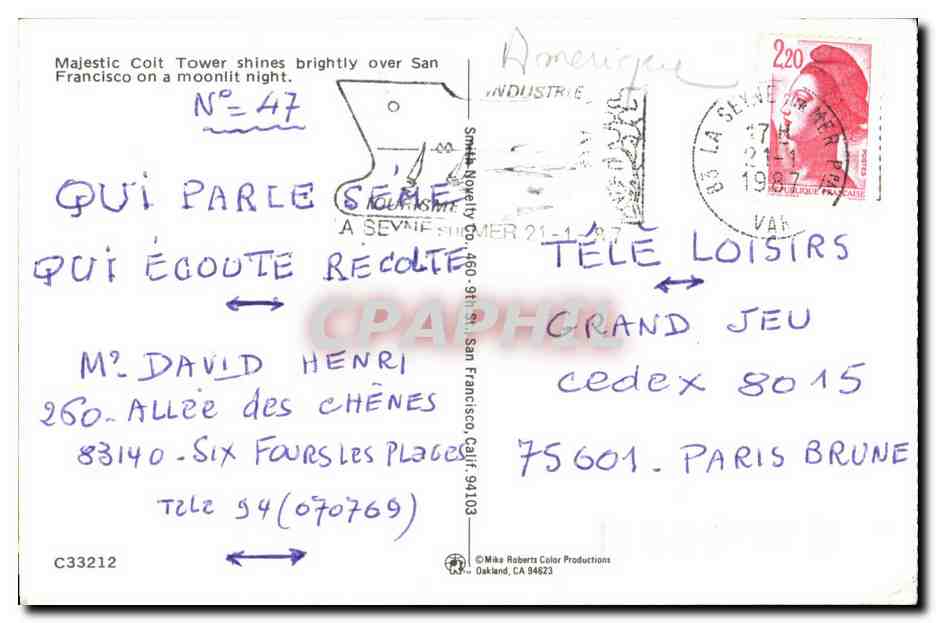 Majestic Coit Tower shines brightly over San
Francisco on a moonlit night.
N° = 47
QUI PARLE SÈME
QUI ÉCOUTE RÉCOLTE
Mr DAVID HENRI
260 - ALLÉE des CHÊNES
83140 - SIX FOURS LES PLAGES
TéLé 94 (070769)
C33212
Smith Novelty Co., 460 - 9th St., San Francisco, Calif. 94103
Amerique
INDUSTRIE
TOURISME
LA SEYNE SUR MER 21-1-87
83 LA SEYNE S/MER
17 H
21-1
1987
VAR
2,20
POSTES
REPUBLIQUE FRANCAISE
TÉLÉ LOISIRS
GRAND JEU
cedex 8015
75601 - PARIS BRUNE
CPAPHIL
©Mike Roberts Color Productions
Oakland, CA 94623